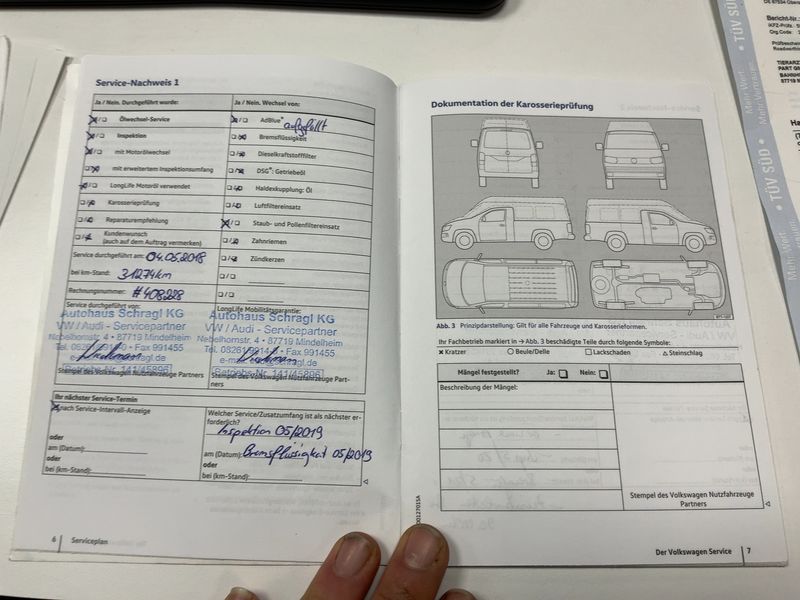 Service-Nachweis 1
Ja / Nein. Durchgeführt wurde:
Ölwechsel-Service
Inspektion
mit Motorölwechsel
mit erweitertem Inspektionsumfang
LongLife Motoröl verwendet
Karosserieprüfung
Reparaturempfehlung
Kundenwunsch
(auch auf dem Auftrag vermerken)
Service durchgeführt am: 04.06.2018
bei km-Stand: 31274km
Rechnungsnummer: #408228
Service durchgeführt von:
Autohaus Schragl KG
VW / Audi - Servicepartner
Nebelhornstr. 4 • 87719 Mindelheim
Stempel des Volkswagen Nutzfahrzeuge Partners
Ja / Nein. Wechsel von:
AdBlue® aufgefüllt
Bremsflüssigkeit
Dieselkraftstofffilter
DSG®: Getriebeöl
Haldexkupplung: Öl
Luftfiltereinsatz
Staub- und Pollenfiltereinsatz
Zahnriemen
Zündkerzen
LongLife Mobilitätsgarantie:
Autohaus Schragl KG
VW / Audi - Servicepartner
Nebelhornstr. 4 • 87719 Mindelheim
Betriebs-Nr. 141/45896
Stempel des Volkswagen Nutzfahrzeuge Part-
ners
Ihr nächster Service-Termin
nach Service-Intervall-Anzeige
oder
am (Datum):
oder
bei (km-Stand):
Welcher Service/Zusatzumfang ist als nächster er-
forderlich?
Inspektion 05/2019
am (Datum): Bremsflüssigkeit 05/2019
oder
bei (km-Stand):
6 Serviceplan
Dokumentation der Karosserieprüfung
Abb. 3 Prinzipdarstellung: Gilt für alle Fahrzeuge und Karosserieformen.
Ihr Fachbetrieb markiert in → Abb. 3 beschädigte Teile durch folgende Symbole:
Kratzer
Beule/Delle
Lackschaden
Steinschlag
Mängel festgestellt? Ja: Nein:
Beschreibung der Mängel:
Stempel des Volkswagen Nutzfahrzeuge
Partners
Der Volkswagen Service 7
TÜV SÜD
Mehr Wert.
Mehr Vertrauen.
TÜV SÜD
Mehr Wert.